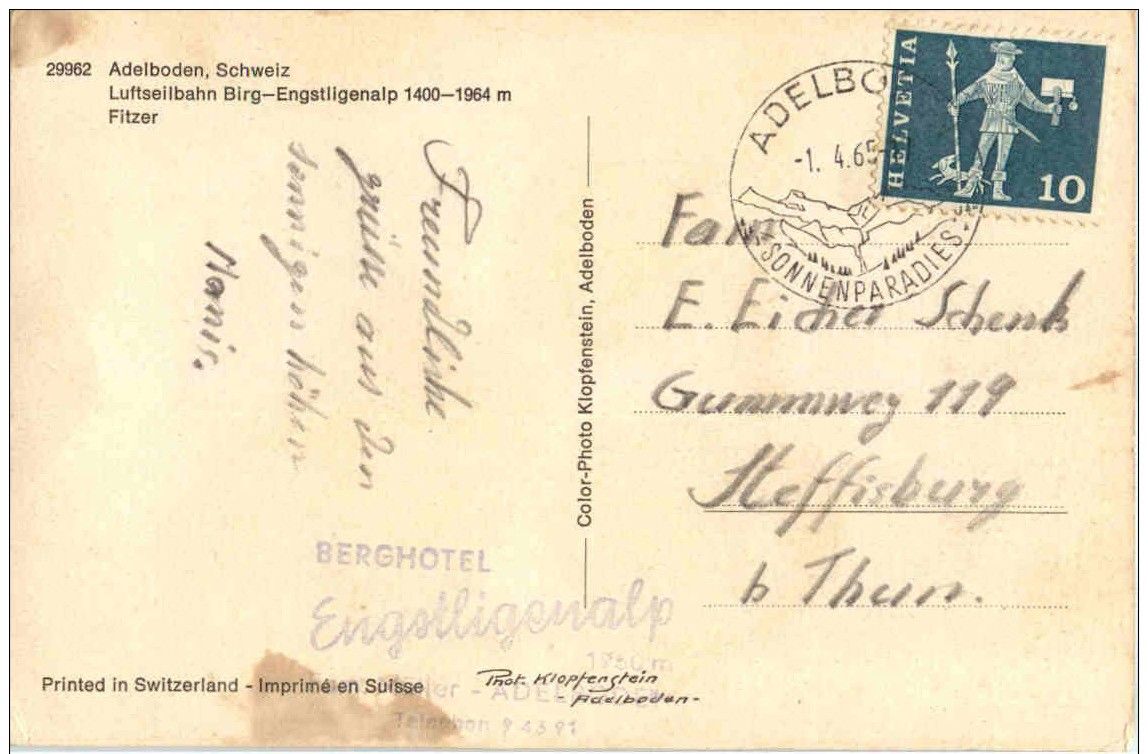 29962 Adelboden, Schweiz
Luftseilbahn Birg–Engstligenalp 1400–1964 m
Fitzer
Freundliche
grüsse aus den
sonnigen höhen
Color-Photo Klopfenstein, Adelboden
ADELBO
-1. 4.65
SONNENPARADIES
HELVETIA
10
Fam
E. Eicher Schenk
Gummweg 119
Steffisburg
b Thun.
BERGHOTEL
Engstligenalp
m
- ADELBODEN
Telephon 9 43 91
Phot. Klopfenstein
-Adelboden-
Printed in Switzerland - Imprimé en Suisse